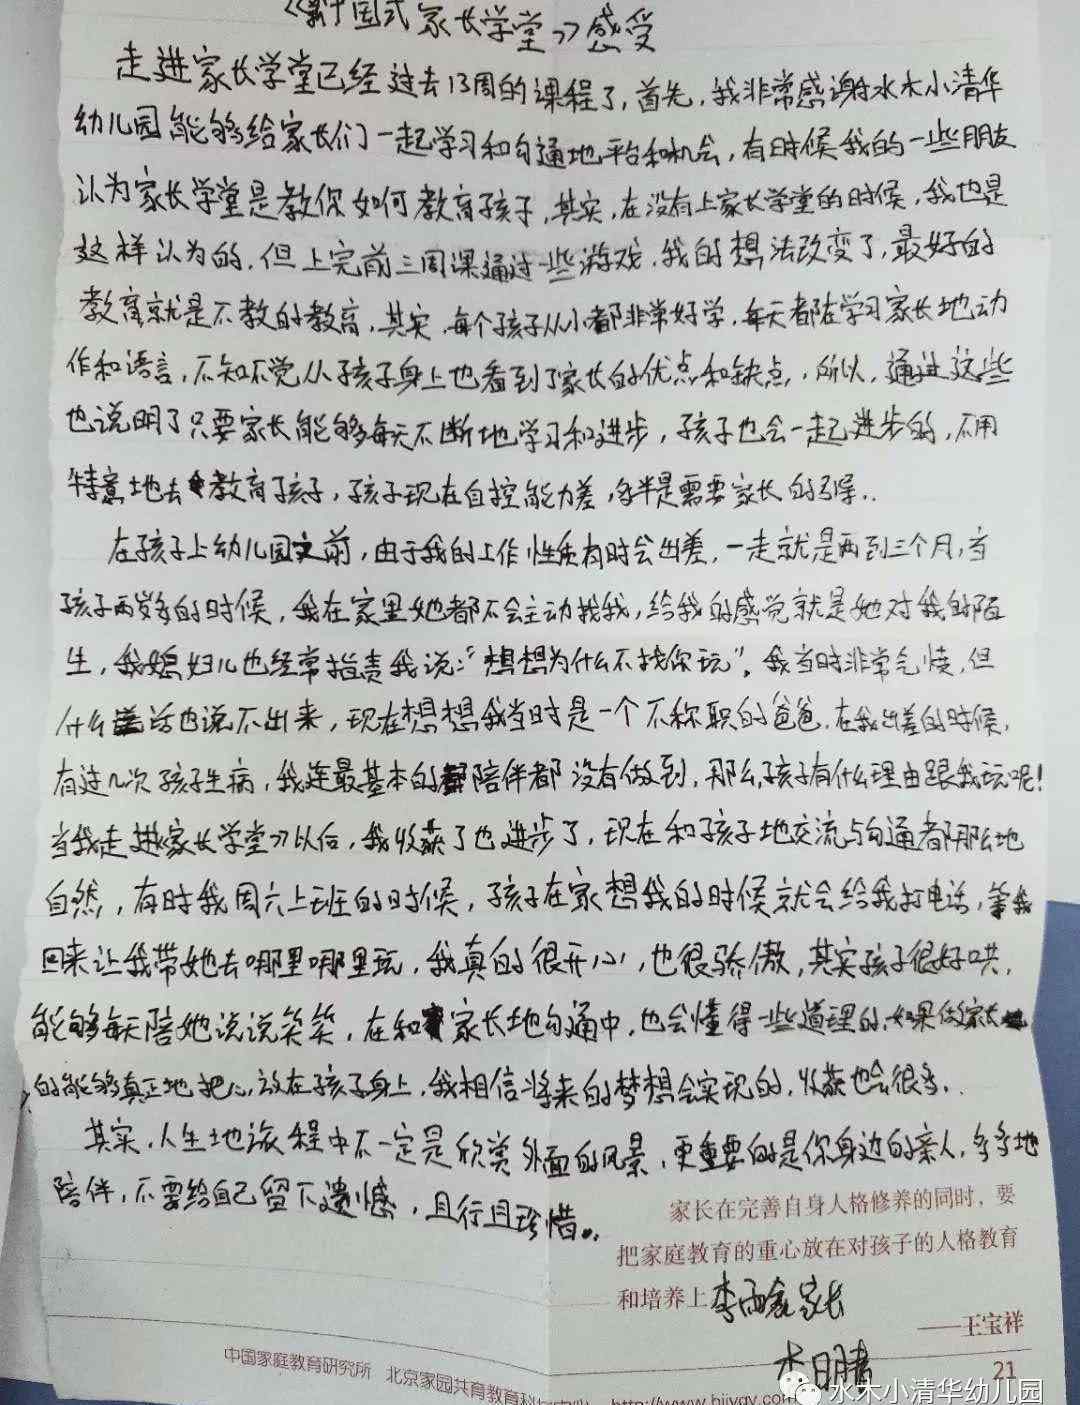 《新中国式家长学堂》感受
走进家长学堂已经过去13周的课程了，首先，我非常感谢水木小清华
幼儿园能够给家长们一起学习和勾通地平台和机会，有时候我的一些朋友
认为家长学堂是教你如何教育孩子，其实，在没有上家长学堂的时候，我也是
这样认为的，但上完前三周课通过一些游戏，我的想法改变了，最好的
教育就是不教的教育，其实，每个孩子从小都非常好学，每天都在学习家长地动
作和语言，不知不觉从孩子身上也看到了家长的优点和缺点，所以，通过这些
也说明了只要家长能够每天不断地学习和进步，孩子也会一起进步的，不用
特意地去教育孩子，孩子现在自控能力差，多半是需要家长的引导..
在孩子上幼儿园之前，由于我的工作性质有时会出差，一走就是两到三个月，当
孩子两岁多的时候，我在家里她都不会主动找我，给我的感觉就是她对我的陌
生，我媳妇儿也经常指责我说：“想想为什么不找你玩”。我当时非常气愤，但
什么话也说不出来，现在想想我当时是一个不称职的爸爸，在我出差的时候，
有过几次孩子生病，我连最基本的陪伴都没有做到，那么，孩子有什么理由跟我玩呢！
当我走进《家长学堂》以后，我收获了也进步了，现在和孩子地交流与勾通都那么地
自然，有时我周六上班的时候，孩子在家想我的时候就会给我打电话，等我
回来让我带她去哪里哪里玩，我真的很开心，也很骄傲，其实孩子很好哄，
能够每天陪她说说笑笑，在和家长地勾通中，也会懂得一些道理的，如果做家长
的能够真正地把心放在孩子身上，我相信将来的梦想会实现的，收获也会很多..
其实，人生地旅程中不一定是欣赏外面的风景，更重要的是你身边的亲人，多多地
陪伴，不要给自己留下遗憾，且行且珍惜..
家长在完善自身人格修养的同时，要
把家庭教育的重心放在对孩子的人格教育
和培养上 李雨 家长
——王宝祥
李明
中国家庭教育研究所 北京家园共育教育科 http://www.bjjygy.com 21
水木小清华幼儿园